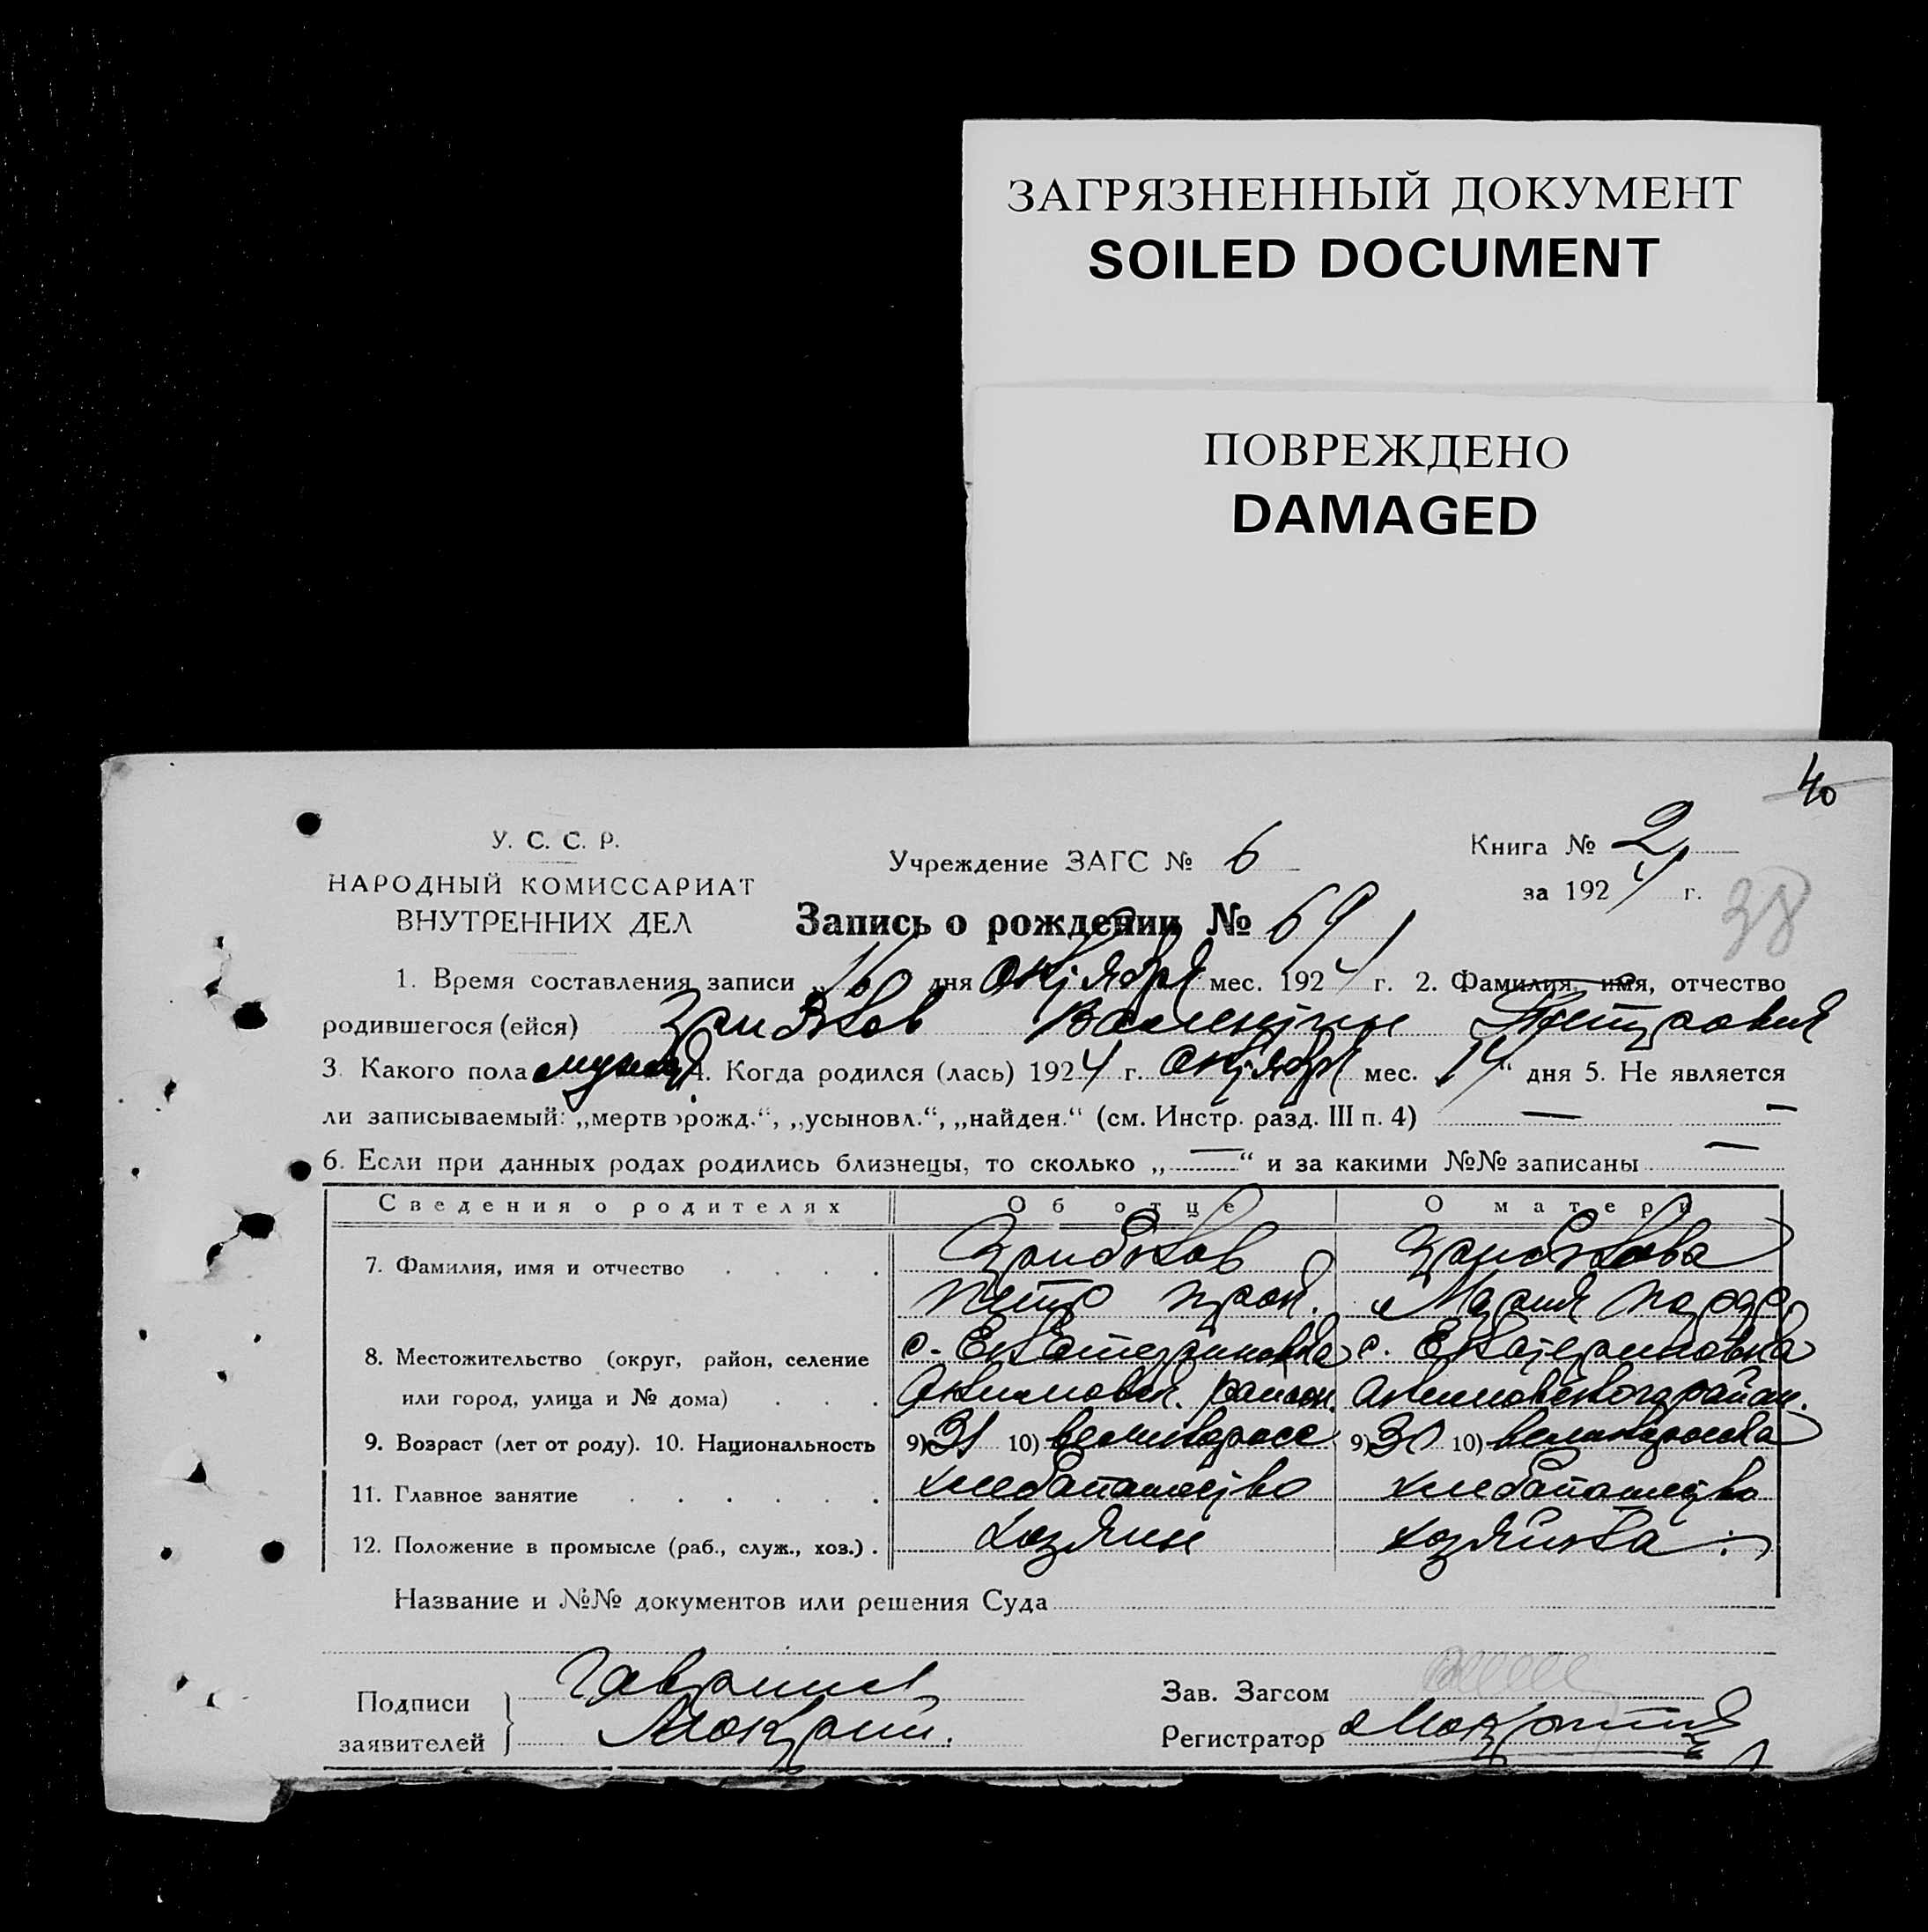 ЗАГРЯЗНЕННЫЙ ДОКУМЕНТ
SOILED DOCUMENT
ПОВРЕЖДЕНО
DAMAGED
40
У. С. С. Р.
НАРОДНЫЙ КОМИССАРИАТ
ВНУТРЕННИХ ДЕЛ
Учреждение ЗАГС № 6
Книга № 2
за 1924 г.
38
Запись о рождении № 69
1. Время составления записи „16 дня Октября мес. 1924 г. 2. Фамилия, имя, отчество
родившегося (ейся) Валентин Петрович
3. Какого пола 4. Когда родился (лась) 1924 г. Октября мес. 14“ дня 5. Не является
ли записываемый: „мертворожд.“, „усыновл.“, „найден.“ (см. Инстр. разд. III п. 4) — —
6. Если при данных родах родились близнецы, то сколько „—“ и за какими №№ записаны —
Сведения о родителях Об отце О матери
7. Фамилия, имя и отчество . . . .
Петр Мария
с. Екатериновка с. Екатериновка
8. Местожительство (округ, район, селение
или город, улица и № дома) . . . Акимовск. район. Акимовского район.
9. Возраст (лет от роду). 10. Национальность 9) 31 10) великоросс 9) 30 10) великороска
11. Главное занятие . . . . . . хлебопашество хлебопашество
12. Положение в промысле (раб., служ., хоз.) . хозяин хозяйка
Название и №№ документов или решения Суда
Подписи
заявителей
Зав. Загсом
Регистратор